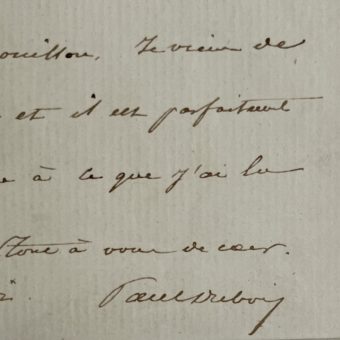 ouillon, Je viens de
et il est parfaitement
e à ce que j'ai lu
Tout à vous de cœur.
Paul Dubois